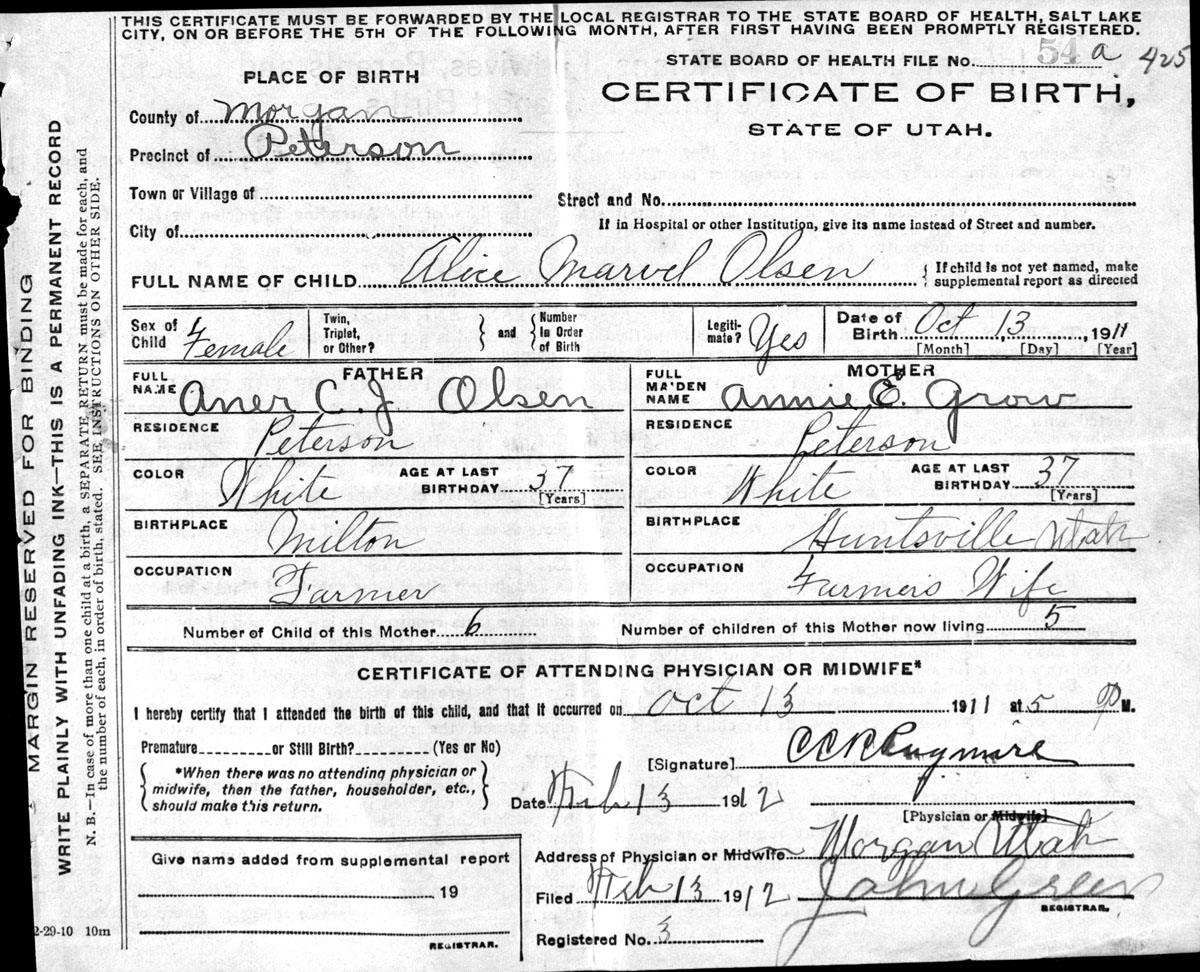 THIS CERTIFICATE MUST BE FORWARDED BY THE LOCAL REGISTRAR TO THE STATE BOARD OF HEALTH, SALT LAKE
CITY, ON OR BEFORE THE 5TH OF THE FOLLOWING MONTH, AFTER FIRST HAVING BEEN PROMPTLY REGISTERED.
STATE BOARD OF HEALTH FILE No. 54 a 425
PLACE OF BIRTH
CERTIFICATE OF BIRTH,
STATE OF UTAH.
County of Morgan
Precinct of Peterson
Town or Village of
Street and No.
City of
If in Hospital or other Institution, give its name instead of Street and number.
FULL NAME OF CHILD Alice Marvel Olsen { If child is not yet named, make
supplemental report as directed
Sex of Child Female
Twin, Triplet, or Other? } and { Number In Order of Birth
Legiti-mate? Yes
Date of Birth Oct 13, 1911
[Month] [Day] [Year]
FATHER
FULL NAME Aner C. J Olsen
RESIDENCE Peterson
COLOR White AGE AT LAST BIRTHDAY 37 [Years]
BIRTHPLACE Milton
OCCUPATION Farmer
MOTHER
FULL MAIDEN NAME Annie E. Grow
RESIDENCE Peterson
COLOR White AGE AT LAST BIRTHDAY 37 [Years]
BIRTHPLACE Huntsville Utah
OCCUPATION Farmers Wife
Number of Child of this Mother 6 Number of children of this Mother now living 5
CERTIFICATE OF ATTENDING PHYSICIAN OR MIDWIFE*
I hereby certify that I attended the birth of this child, and that it occurred on Oct 13 1911 at 5 P M.
Premature or Still Birth? (Yes or No)
*When there was no attending physician or
midwife, then the father, householder, etc.,
should make this return.
[Signature] C C R
[Physician or Midwife]
Date Feb 13 1912
Address of Physician or Midwife Morgan Utah
Filed Feb 13 1912 John Green
REGISTRAR.
Registered No. 3
Give name added from supplemental report
19
REGISTRAR.
2-29-10 10m
MARGIN RESERVED FOR BINDING
WRITE PLAINLY WITH UNFADING INK—THIS IS A PERMANENT RECORD
N. B.—In case of more than one child at a birth, a SEPARATE RETURN must be made for each, and
the number of each, in order of birth, stated. SEE INSTRUCTIONS ON OTHER SIDE.